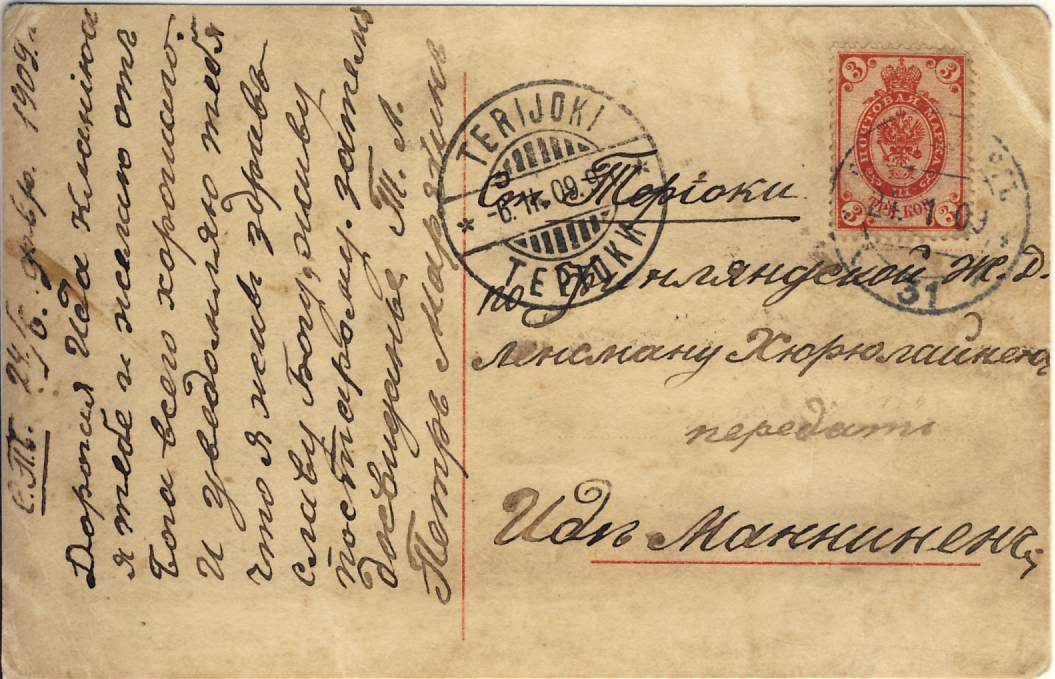 С.П. 24/6. Февр. 1909 г.
Дорогая Ида кланяюсь
я тебе и желаю отъ
Бога всего хорошаго.
И уведомляю тебя
что я живъ здравъ
славу Богу, живу
постарому. затемъ
досвиданье Т. Л.
Петръ
TERIJOKI
-6.II.09.
ТЕРIОКИ
3
3
ПОЧТОВАЯ МАРКА
ТРИ КОП
3
3
09
31
Ст. Терiоки
по Финляндской Ж.Д.
Ленсману Хюрюляйненъ
передати
Идѣ Манниненъ